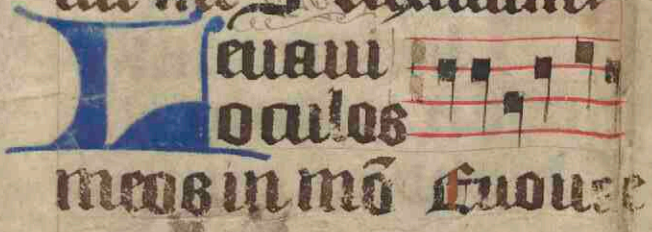 Leuaui
oculos
meos in mō Euouae